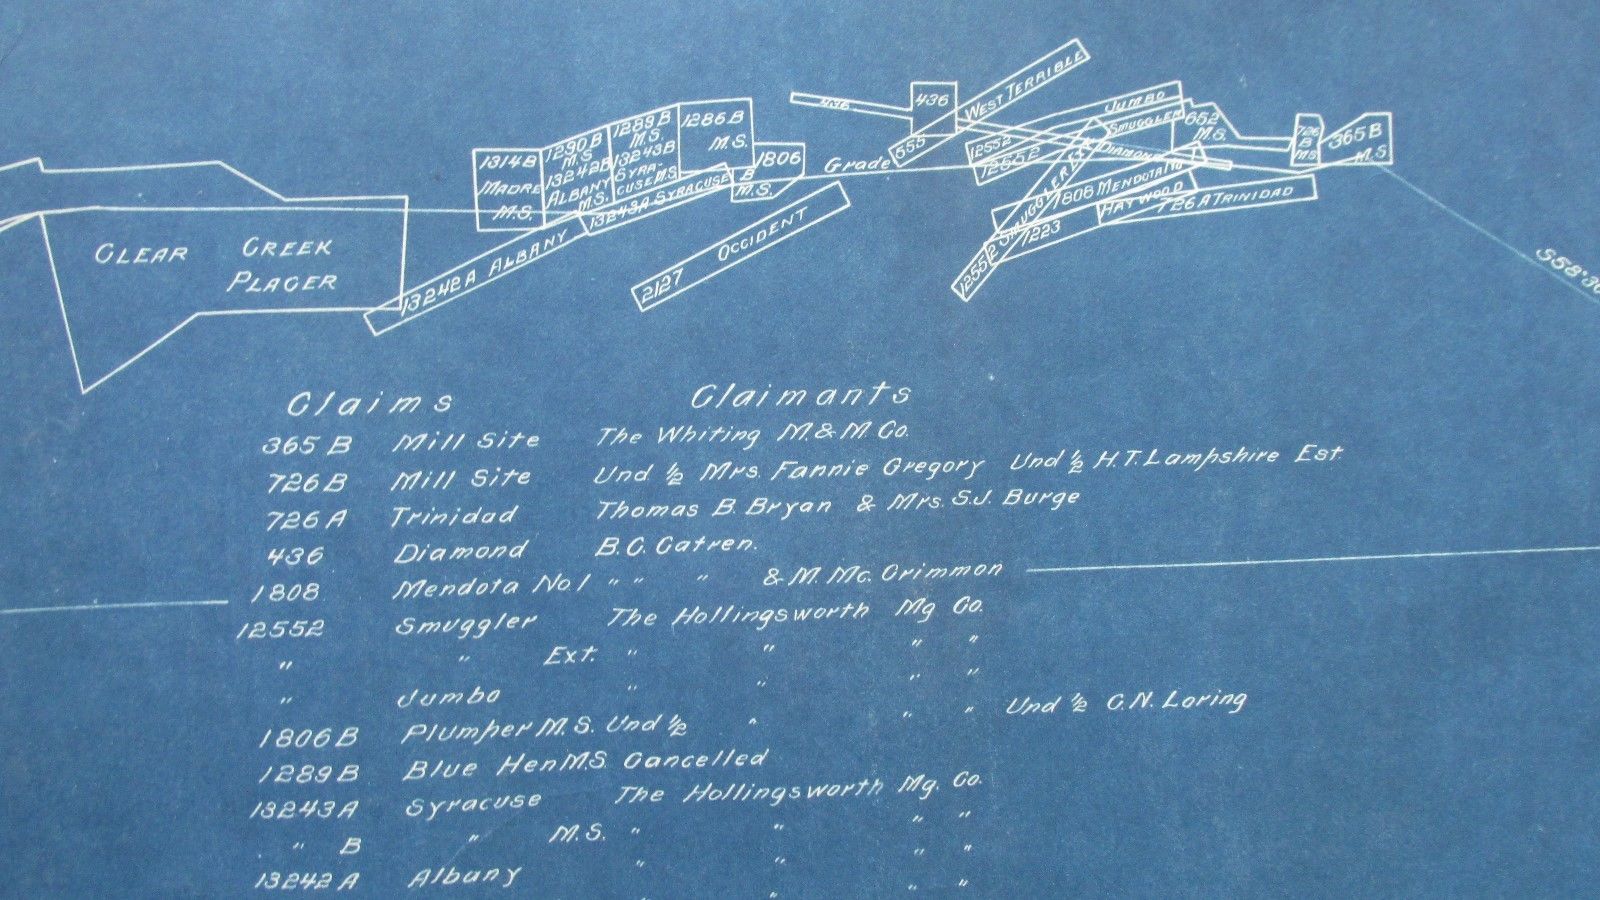 CLEAR CREEK
PLACER
1314 B
MADRE
M.S.
1290 B
M.S.
13242 B
ALBANY
M.S.
1289 B
M.S.
13243 B
SYRA-
CUSE M.S.
1286 B
M.S.
1806
B
M.S.
13242 A ALBANY
13243 A SYRACUSE
2127 OCCIDENT
Grade
436
436
555 WEST TERRIBLE
12552 JUMBO
12552 SMUGGLER
DIAMOND
652
M.S.
726
B
MS
365 B
M.S
1808 MENDOTA No 1
HAYWOOD
726 A TRINIDAD
1223
12552 SMUGGLER EX
S58°30
Claims Claimants
365 B Mill Site The Whiting M. & M. Co.
726 B Mill Site Und ½ Mrs. Fannie Gregory Und ½ H.T. Lampshire Est.
726 A Trinidad Thomas B. Bryan & Mrs. S.J. Burge
436 Diamond B.C. Catren.
1808 Mendota No.1 " " " & M. Mc. Crimmon
12552 Smuggler The Hollingsworth Mg Co.
" " Ext. " " " "
" Jumbo " " " "
1806 B Plumher M.S. Und ½ " " " Und ½ C.N. Loring
1289 B Blue Hen M.S. Cancelled
13243 A Syracuse The Hollingsworth Mg. Co.
" B " M.S. " " " "
13242 A Albany " " " "